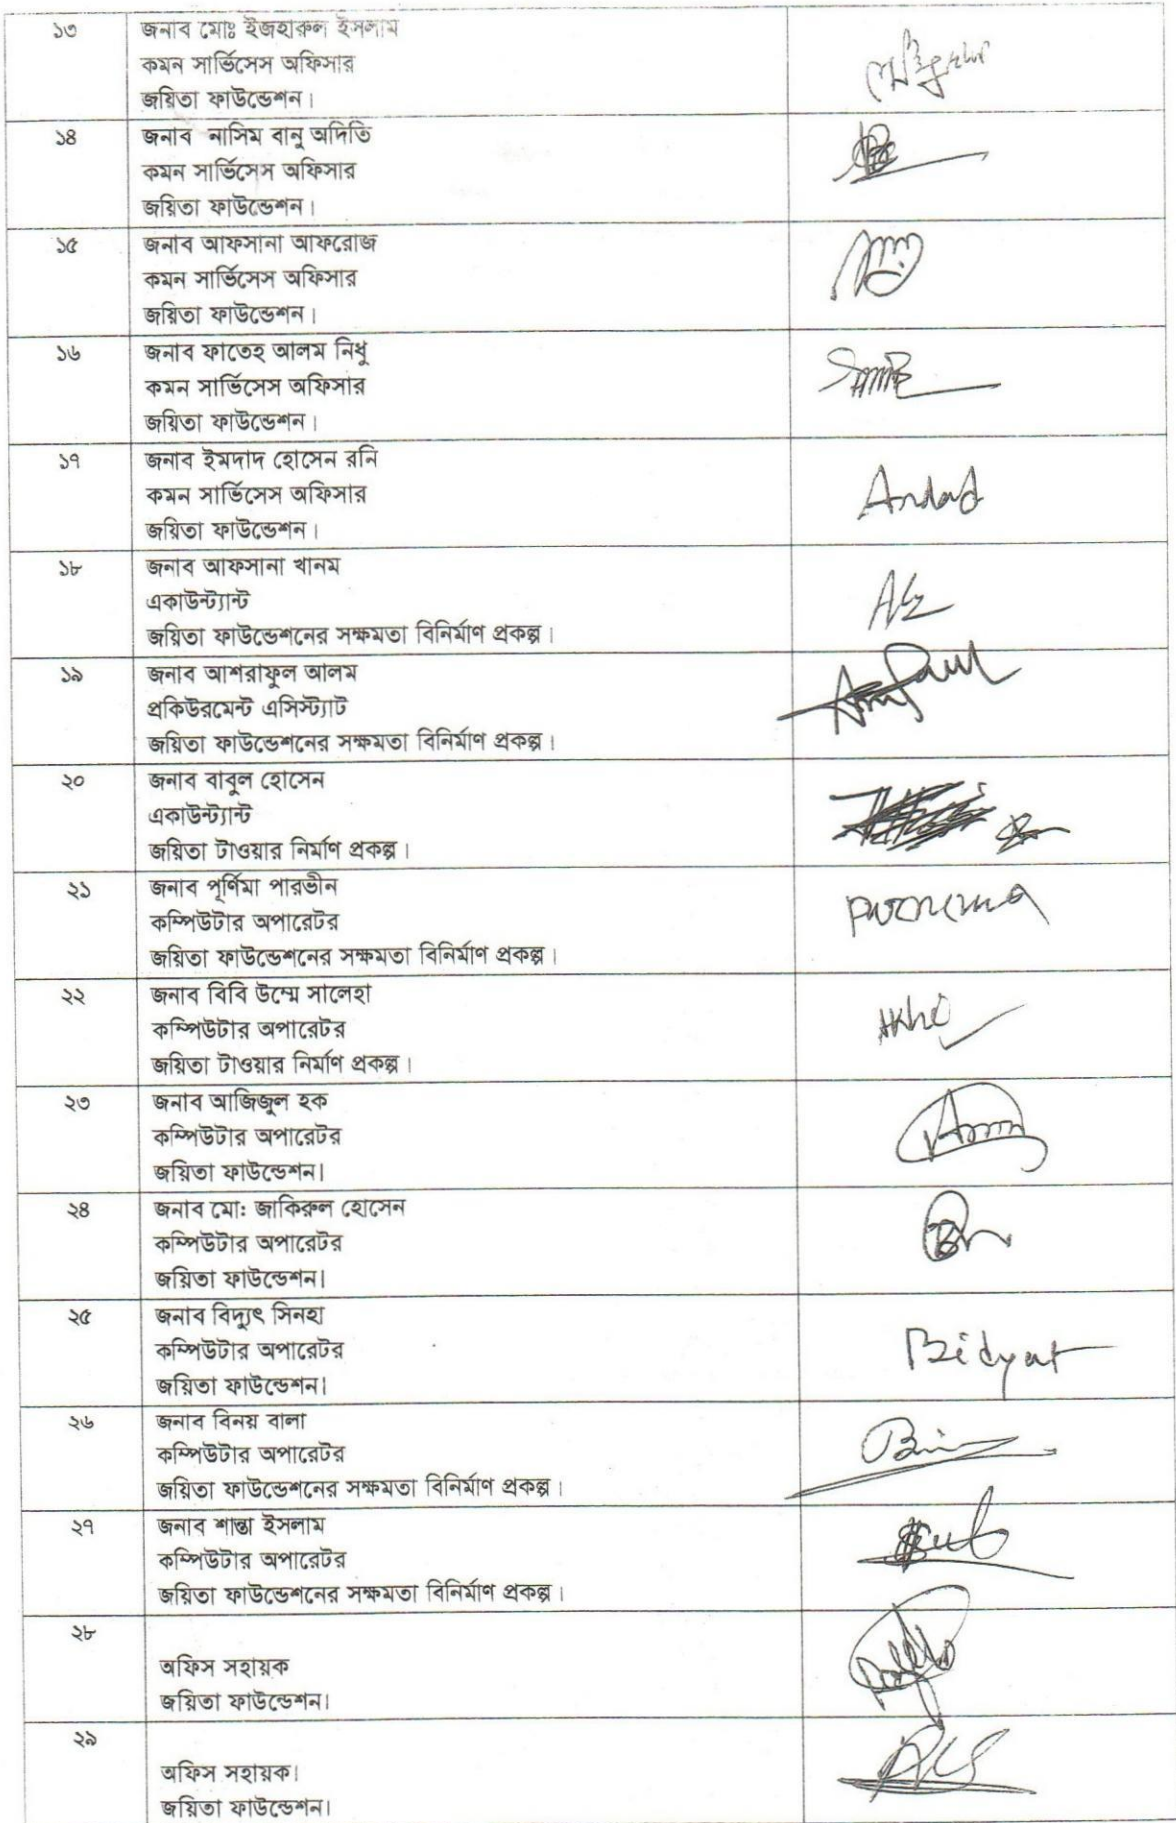 ১৩
জনাব মোঃ ইজহারুল ইসলাম
কমন সার্ভিসেস অফিসার
জয়িতা ফাউন্ডেশন।
১৪
জনাব নাসিম বানু অদিতি
কমন সার্ভিসেস অফিসার
জয়িতা ফাউন্ডেশন।
১৫
জনাব আফসানা আফরোজ
কমন সার্ভিসেস অফিসার
জয়িতা ফাউন্ডেশন।
১৬
জনাব ফাতেহ আলম নিধু
কমন সার্ভিসেস অফিসার
জয়িতা ফাউন্ডেশন।
১৭
জনাব ইমদাদ হোসেন রনি
কমন সার্ভিসেস অফিসার
জয়িতা ফাউন্ডেশন।
১৮
জনাব আফসানা খানম
একাউন্ট্যান্ট
জয়িতা ফাউন্ডেশনের সক্ষমতা বিনির্মাণ প্রকল্প।
১৯
জনাব আশরাফুল আলম
প্রকিউরমেন্ট এসিস্ট্যাট
জয়িতা ফাউন্ডেশনের সক্ষমতা বিনির্মাণ প্রকল্প।
২০
জনাব বাবুল হোসেন
একাউন্ট্যান্ট
জয়িতা টাওয়ার নির্মাণ প্রকল্প।
২১
জনাব পূর্ণিমা পারভীন
কম্পিউটার অপারেটর
জয়িতা ফাউন্ডেশনের সক্ষমতা বিনির্মাণ প্রকল্প।
২২
জনাব বিবি উম্মে সালেহা
কম্পিউটার অপারেটর
জয়িতা টাওয়ার নির্মাণ প্রকল্প।
২৩
জনাব আজিজুল হক
কম্পিউটার অপারেটর
জয়িতা ফাউন্ডেশন।
২৪
জনাব মো: জাকিরুল হোসেন
কম্পিউটার অপারেটর
জয়িতা ফাউন্ডেশন।
২৫
জনাব বিদ্যুৎ সিনহা
কম্পিউটার অপারেটর
জয়িতা ফাউন্ডেশন।
Bidyut
২৬
জনাব বিনয় বালা
কম্পিউটার অপারেটর
জয়িতা ফাউন্ডেশনের সক্ষমতা বিনির্মাণ প্রকল্প।
২৭
জনাব শান্তা ইসলাম
কম্পিউটার অপারেটর
জয়িতা ফাউন্ডেশনের সক্ষমতা বিনির্মাণ প্রকল্প।
২৮
অফিস সহায়ক
জয়িতা ফাউন্ডেশন।
২৯
অফিস সহায়ক।
জয়িতা ফাউন্ডেশন।